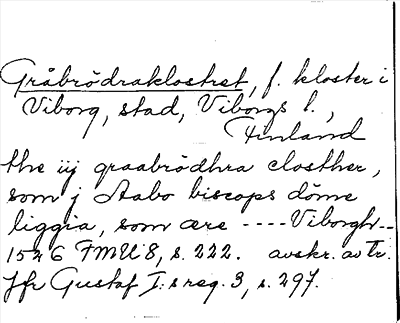 Gråbrödraklostret, f. kloster i
Viborg, stad, Viborgs l.,
Finland
the iij graabrödhra closther,
som j Aabo biscops döme
liggia, som ære ---- Viborgh --
1526 FMU 8, s. 222. avskr. av Tr.
Jfr Gustaf I:s reg. 3, s. 297.